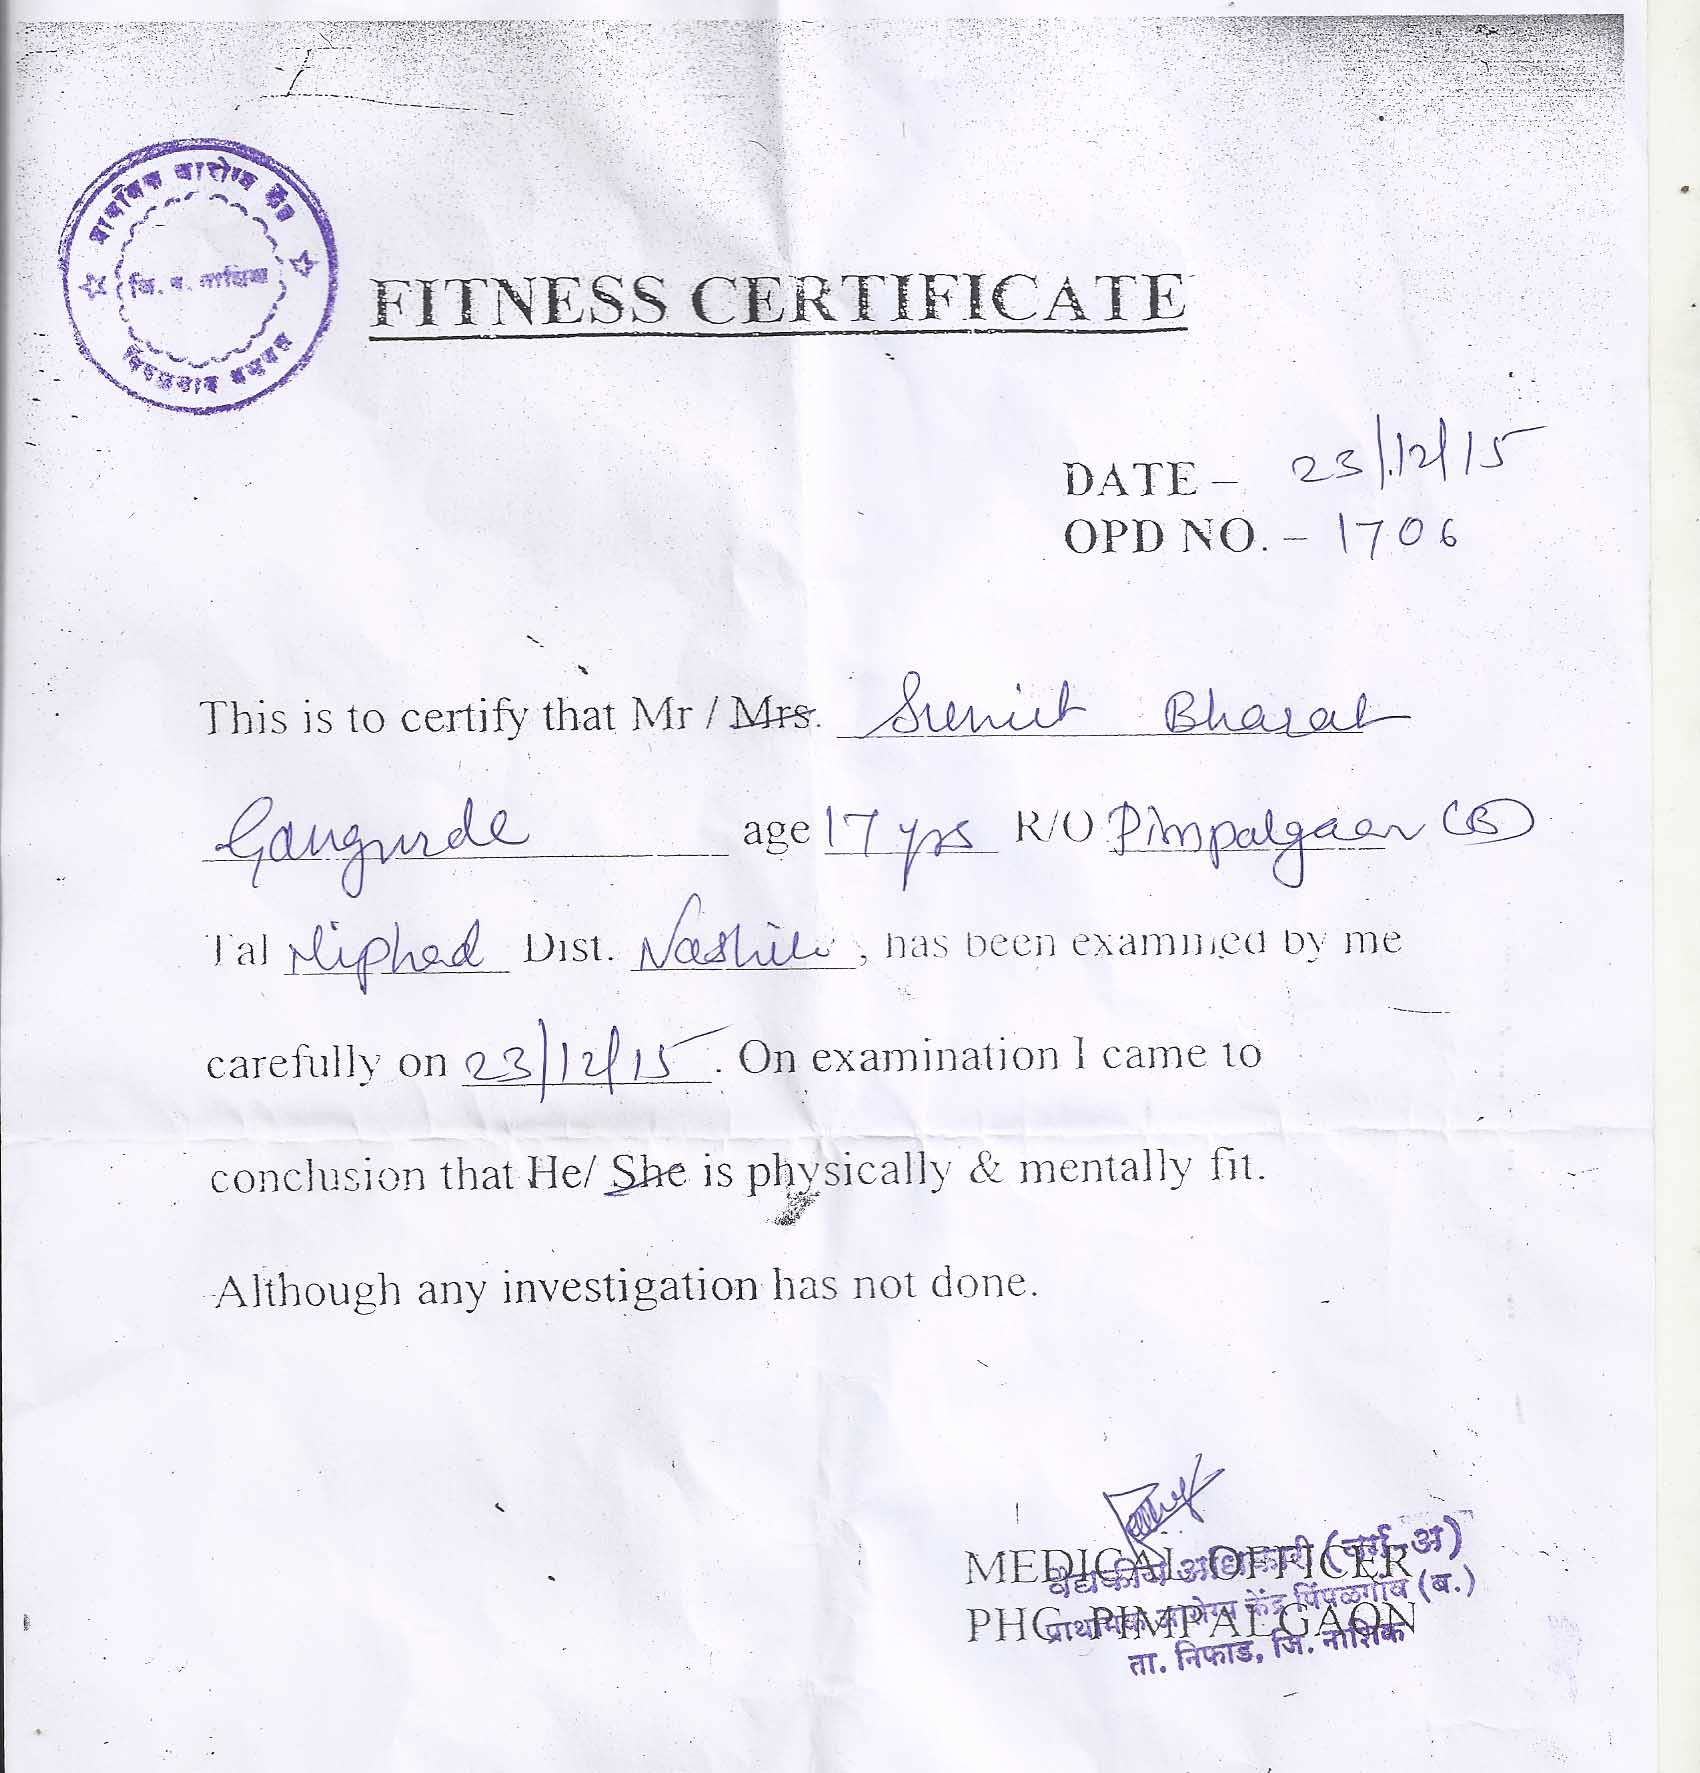 प्राथमिक आरोग्य केंद्र
जि. प. नाशिक
पिंपळगाव बसवंत
FITNESS CERTIFICATE
DATE – 23/12/15
OPD NO. – 1706
This is to certify that Mr / Mrs. Bharat
Gangurde age 17 yrs R/O Pimpalgaon (B)
Tal Niphad Dist. Nashik, has been examined by me
carefully on 23/12/15. On examination I came to
conclusion that He/ She is physically & mentally fit.
Although any investigation has not done.
MEDICAL OFFICER
PHC PIMPALGAON
वैद्यकीय अधिकारी (वर्ग-अ)
प्राथमिक आरोग्य केंद्र पिंपळगांव (ब.)
ता. निफाड, जि. नाशिक